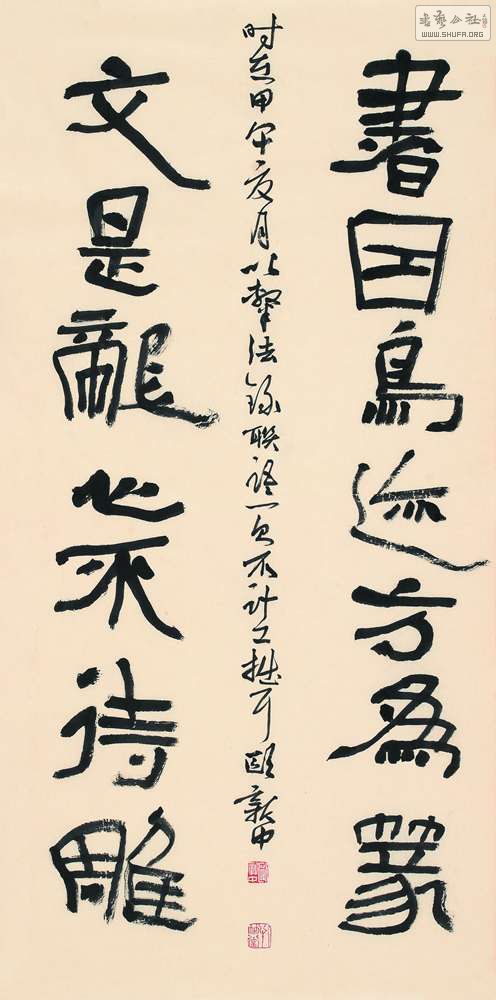 书艺公社
WWW.SHUFA.ORG
書因鳥迹方為篆
时在甲午夏月以法録联语一句不计工拙耳 歐新中
文是龍心不待雕